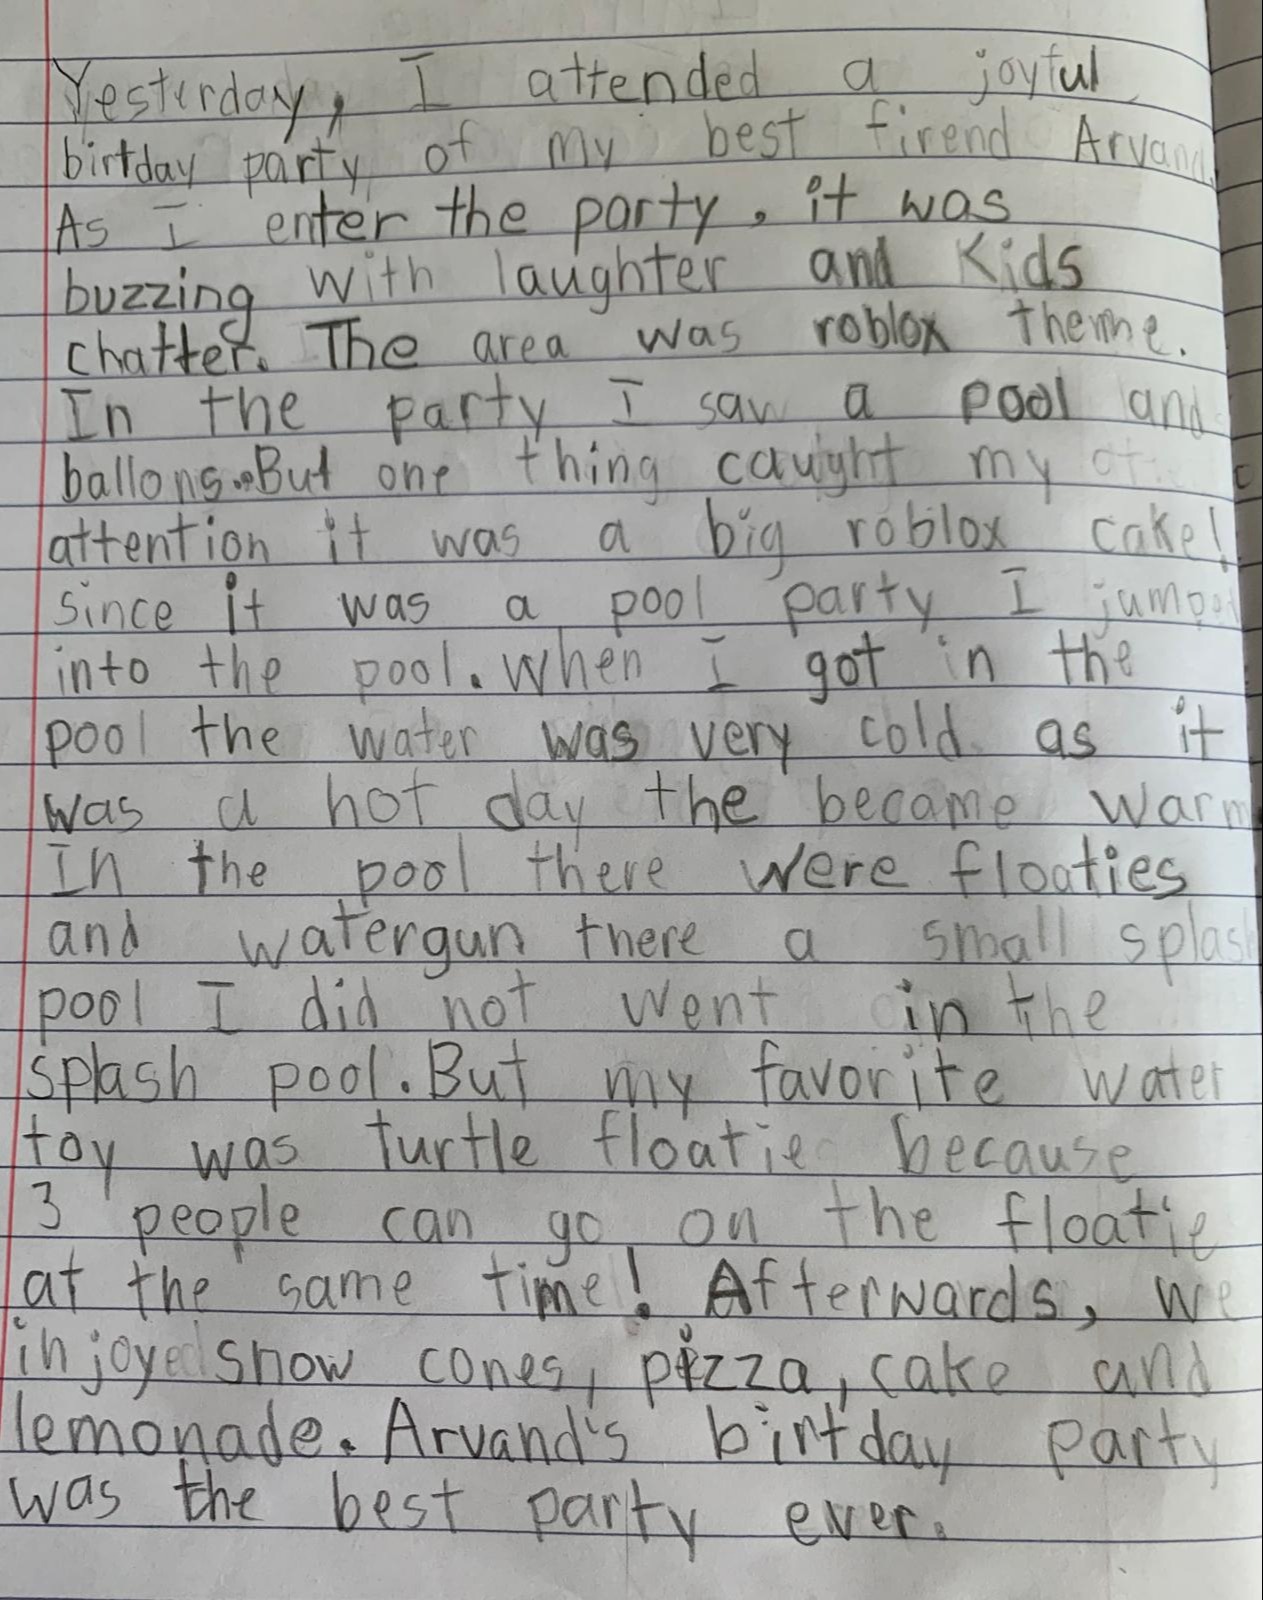 Yesterday, I attended a joyful
birtday party of my best firend Arvand.
As I enter the party, it was
buzzing with laughter and Kids
chatter. The area was roblox theme.
In the party I saw a pool and
ballons. But one thing caught my
attention it was a big roblox cake!
since it was a pool party I jumped
into the pool. When I got in the
pool the water was very cold as it
was a hot day the became warm
In the pool there were floaties
and watergun there a small splash
pool I did not went in the
splash pool. But my favorite water
toy was turtle floatie because
3 people can go on the floatie
at the same time! Afterwards, we
injoyed snow cones, pizza, cake and
lemonade. Arvand's birtday party
was the best party ever.